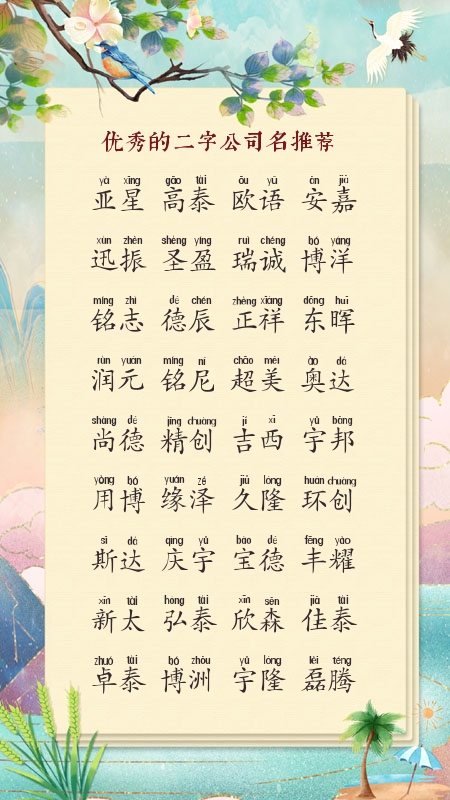 优秀的二字公司名推荐
yà xīng gāo tài ōu yǔ ān jiā
亚星 高泰 欧语 安嘉
xùn zhèn shèng yíng ruì chéng bó yáng
迅振 圣盈 瑞诚 博洋
míng zhì dé chén zhèng xiáng dōng huī
铭志 德辰 正祥 东晖
rùn yuán míng ní chāo měi ào dá
润元 铭尼 超美 奥达
shàng dé jīng chuàng jí xī yǔ bāng
尚德 精创 吉西 宇邦
yòng bó yuán zé jiǔ lóng huán chuàng
用博 缘泽 久隆 环创
sī dá qìng yǔ bǎo dé fēng yào
斯达 庆宇 宝德 丰耀
xīn tài hóng tài xīn sēn jiā tài
新太 弘泰 欣森 佳泰
zhuó tài bó zhōu yǔ lóng lěi téng
卓泰 博洲 宇隆 磊腾